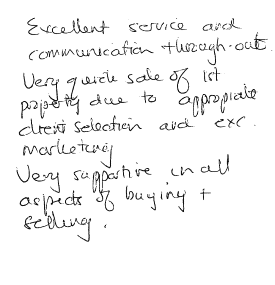 Excellent service and
communication through-out.
Very quick sale of 1st
property due to appropriate
client selection and exc.
marketing
Very supportive in all
aspects of buying +
selling.